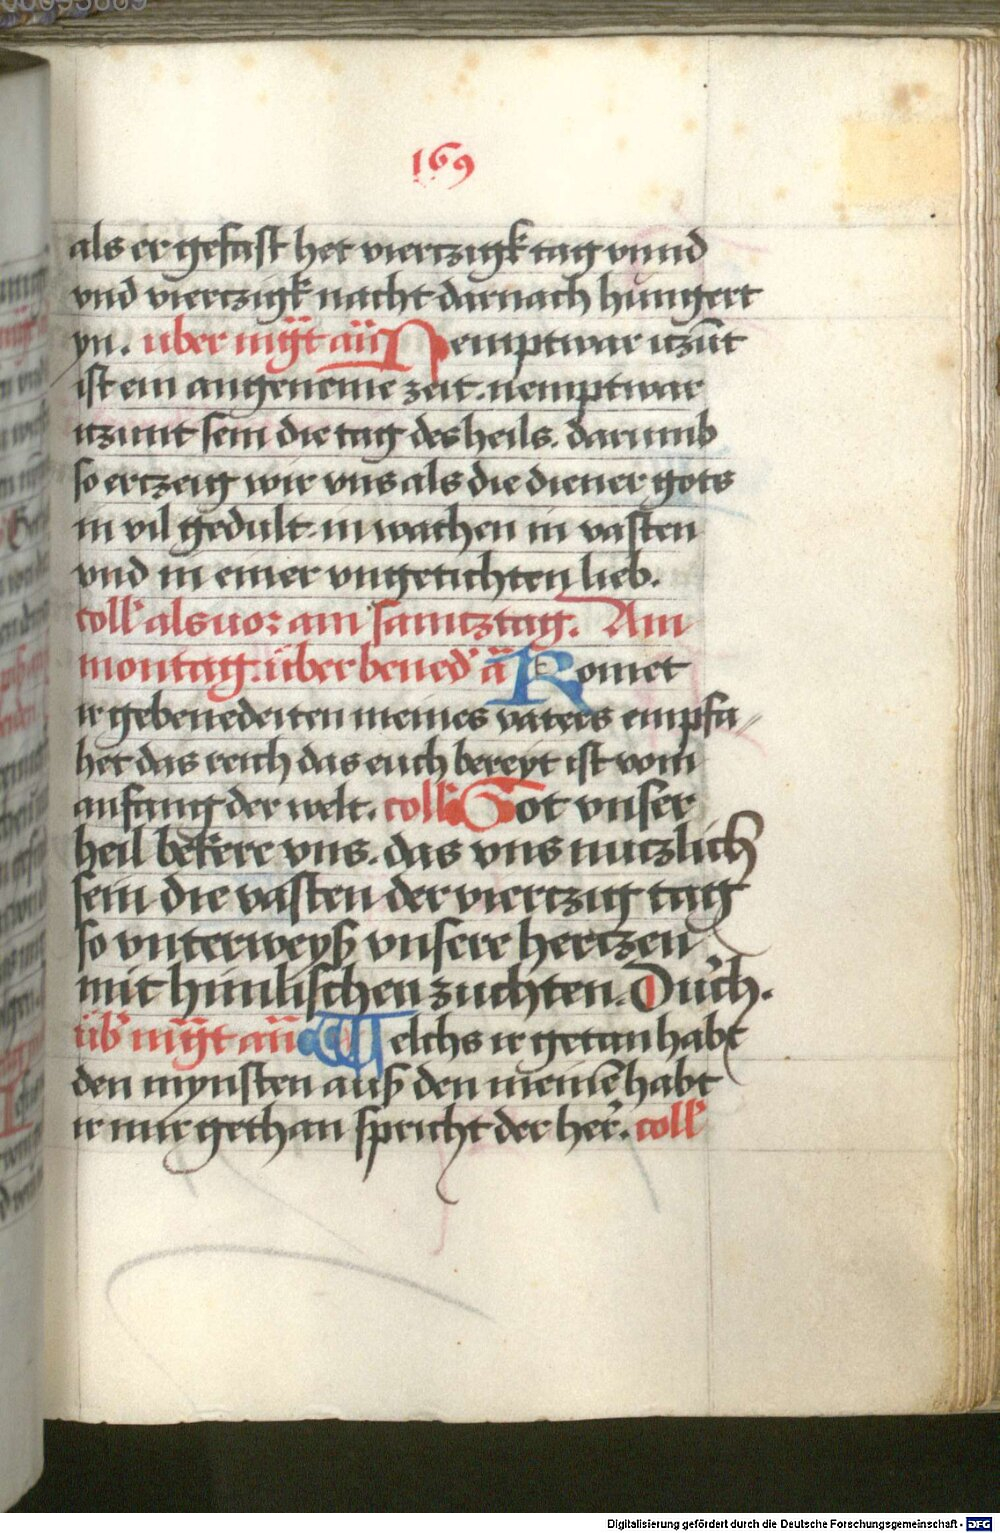 169
als er gefast het viertzigk tag vnnd
vnd viertzigk nacht darnach hungert
yn. uber mgt̄ añ Nemptwar itzūt
ist ein angeneme zeit. nemptwar
itzunt sein die tag des heils. darumb
so ertzeig wir vns als die diener gots
in vil gedult. in wachen in vasten
vnd in einer vngetichten lieb.
coll' als uor am samtztag. Am
montag. über bened' ā Komet
ir gebenedeiten meines vaters empfa//
het das reich das euch bereyt ist vom
anfang der welt. coll' Got vnser
heil bekere vns. das vns nutzlich
sein die vasten der viertzig tag
so vnterweyß vnsere hertzen
mit himlischen zuchten. Durch.
üb' mgt̄ añ Welchs ir getan habt
den mynsten auß den meinē habt
ir mir gethan spricht der her'. coll'
Digitalisierung gefördert durch die Deutsche Forschungsgemeinschaft - DFG